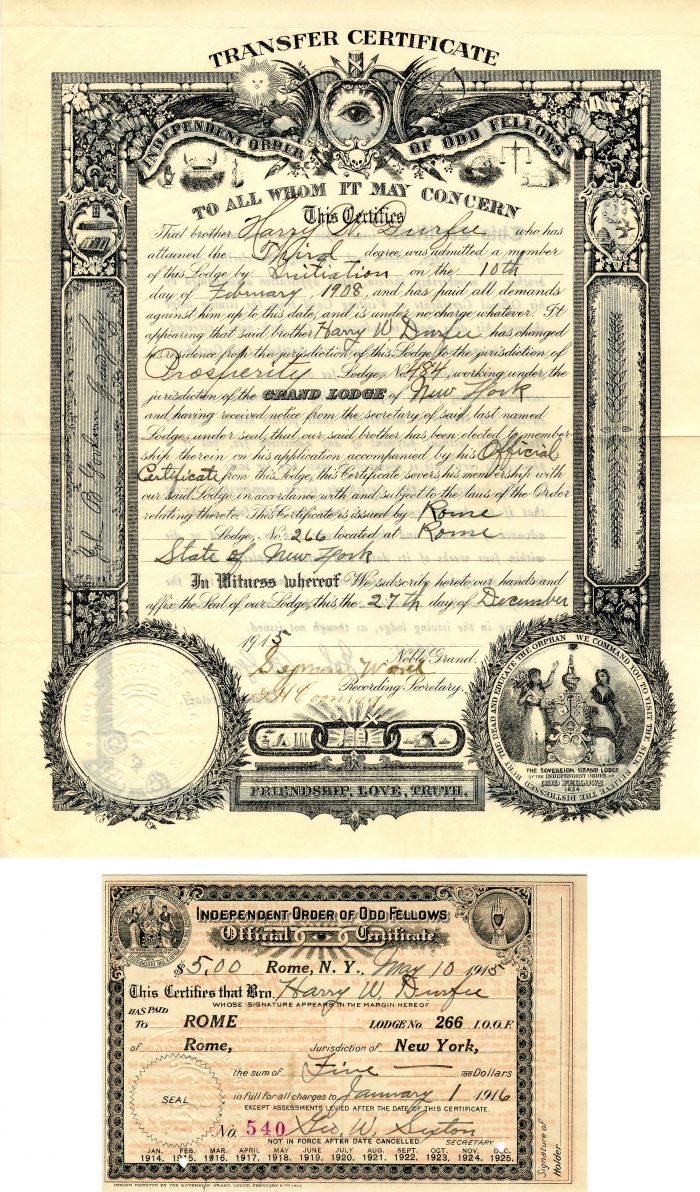 TRANSFER CERTIFICATE
INDEPENDENT ORDER OF ODD FELLOWS
TO ALL WHOM IT MAY CONCERN
This Certifies
That brother Harry W Durfee who has
attained the Third degree, was admitted a member
of this Lodge by Initiation on the 10th
day of February, 1908, and has paid all demands
against him up to this date, and is under no charge whatever. It
appearing that said brother Harry W Durfee has changed
his residence from the jurisdiction of this Lodge to the jurisdiction of
Prosperity Lodge, No. 484, working under the
jurisdiction of the GRAND LODGE of New York
and having received notice from the secretary of said last named
Lodge, under seal, that our said brother has been elected to member-
ship therein on his application, accompanied by his Official
Certificate from this Lodge, this Certificate severs his membership with
our said Lodge in accordance with and subject to the laws of the Order
relating thereto. This Certificate is issued by Rome
Lodge, No. 266 located at Rome
State of New York
In Witness whereof We subscribe hereto our hands and
affix the Seal of our Lodge, this the 27th day of December
1915
Noble Grand.
Recording Secretary.
WE COMMAND YOU TO VISIT THE SICK, RELIEVE THE DISTRESSED, BURY THE DEAD AND EDUCATE THE ORPHAN
THE SOVEREIGN GRAND LODGE
OF THE INDEPENDENT ORDER OF
ODD FELLOWS
1834
FRIENDSHIP, LOVE, TRUTH.
INDEPENDENT ORDER OF ODD FELLOWS
Official Certificate
$5.00 Rome, N. Y., May 10 1915
This Certifies that Bro. Harry W Durfee
WHOSE SIGNATURE APPEARS IN THE MARGIN HEREOF
HAS PAID
To ROME LODGE No. 266 I.O.O.F.
of Rome, Jurisdiction of New York,
the sum of Five /100 Dollars
in full for all charges to January 1 1916
EXCEPT ASSESSMENTS LEVIED AFTER THE DATE OF THIS CERTIFICATE.
SEAL
No. 540 Geo. W. Sexton
NOT IN FORCE AFTER DATE CANCELLED SECRETARY
JAN. FEB. MAR. APRIL MAY JUNE JULY AUG. SEPT. OCT. NOV. DEC.
1914. 1915. 1916. 1917. 1918. 1919. 1920. 1921. 1922. 1923. 1924. 1925.
Signature of Holder.
DESIGN PATENTED BY THE SOVEREIGN GRAND LODGE, FEBRUARY